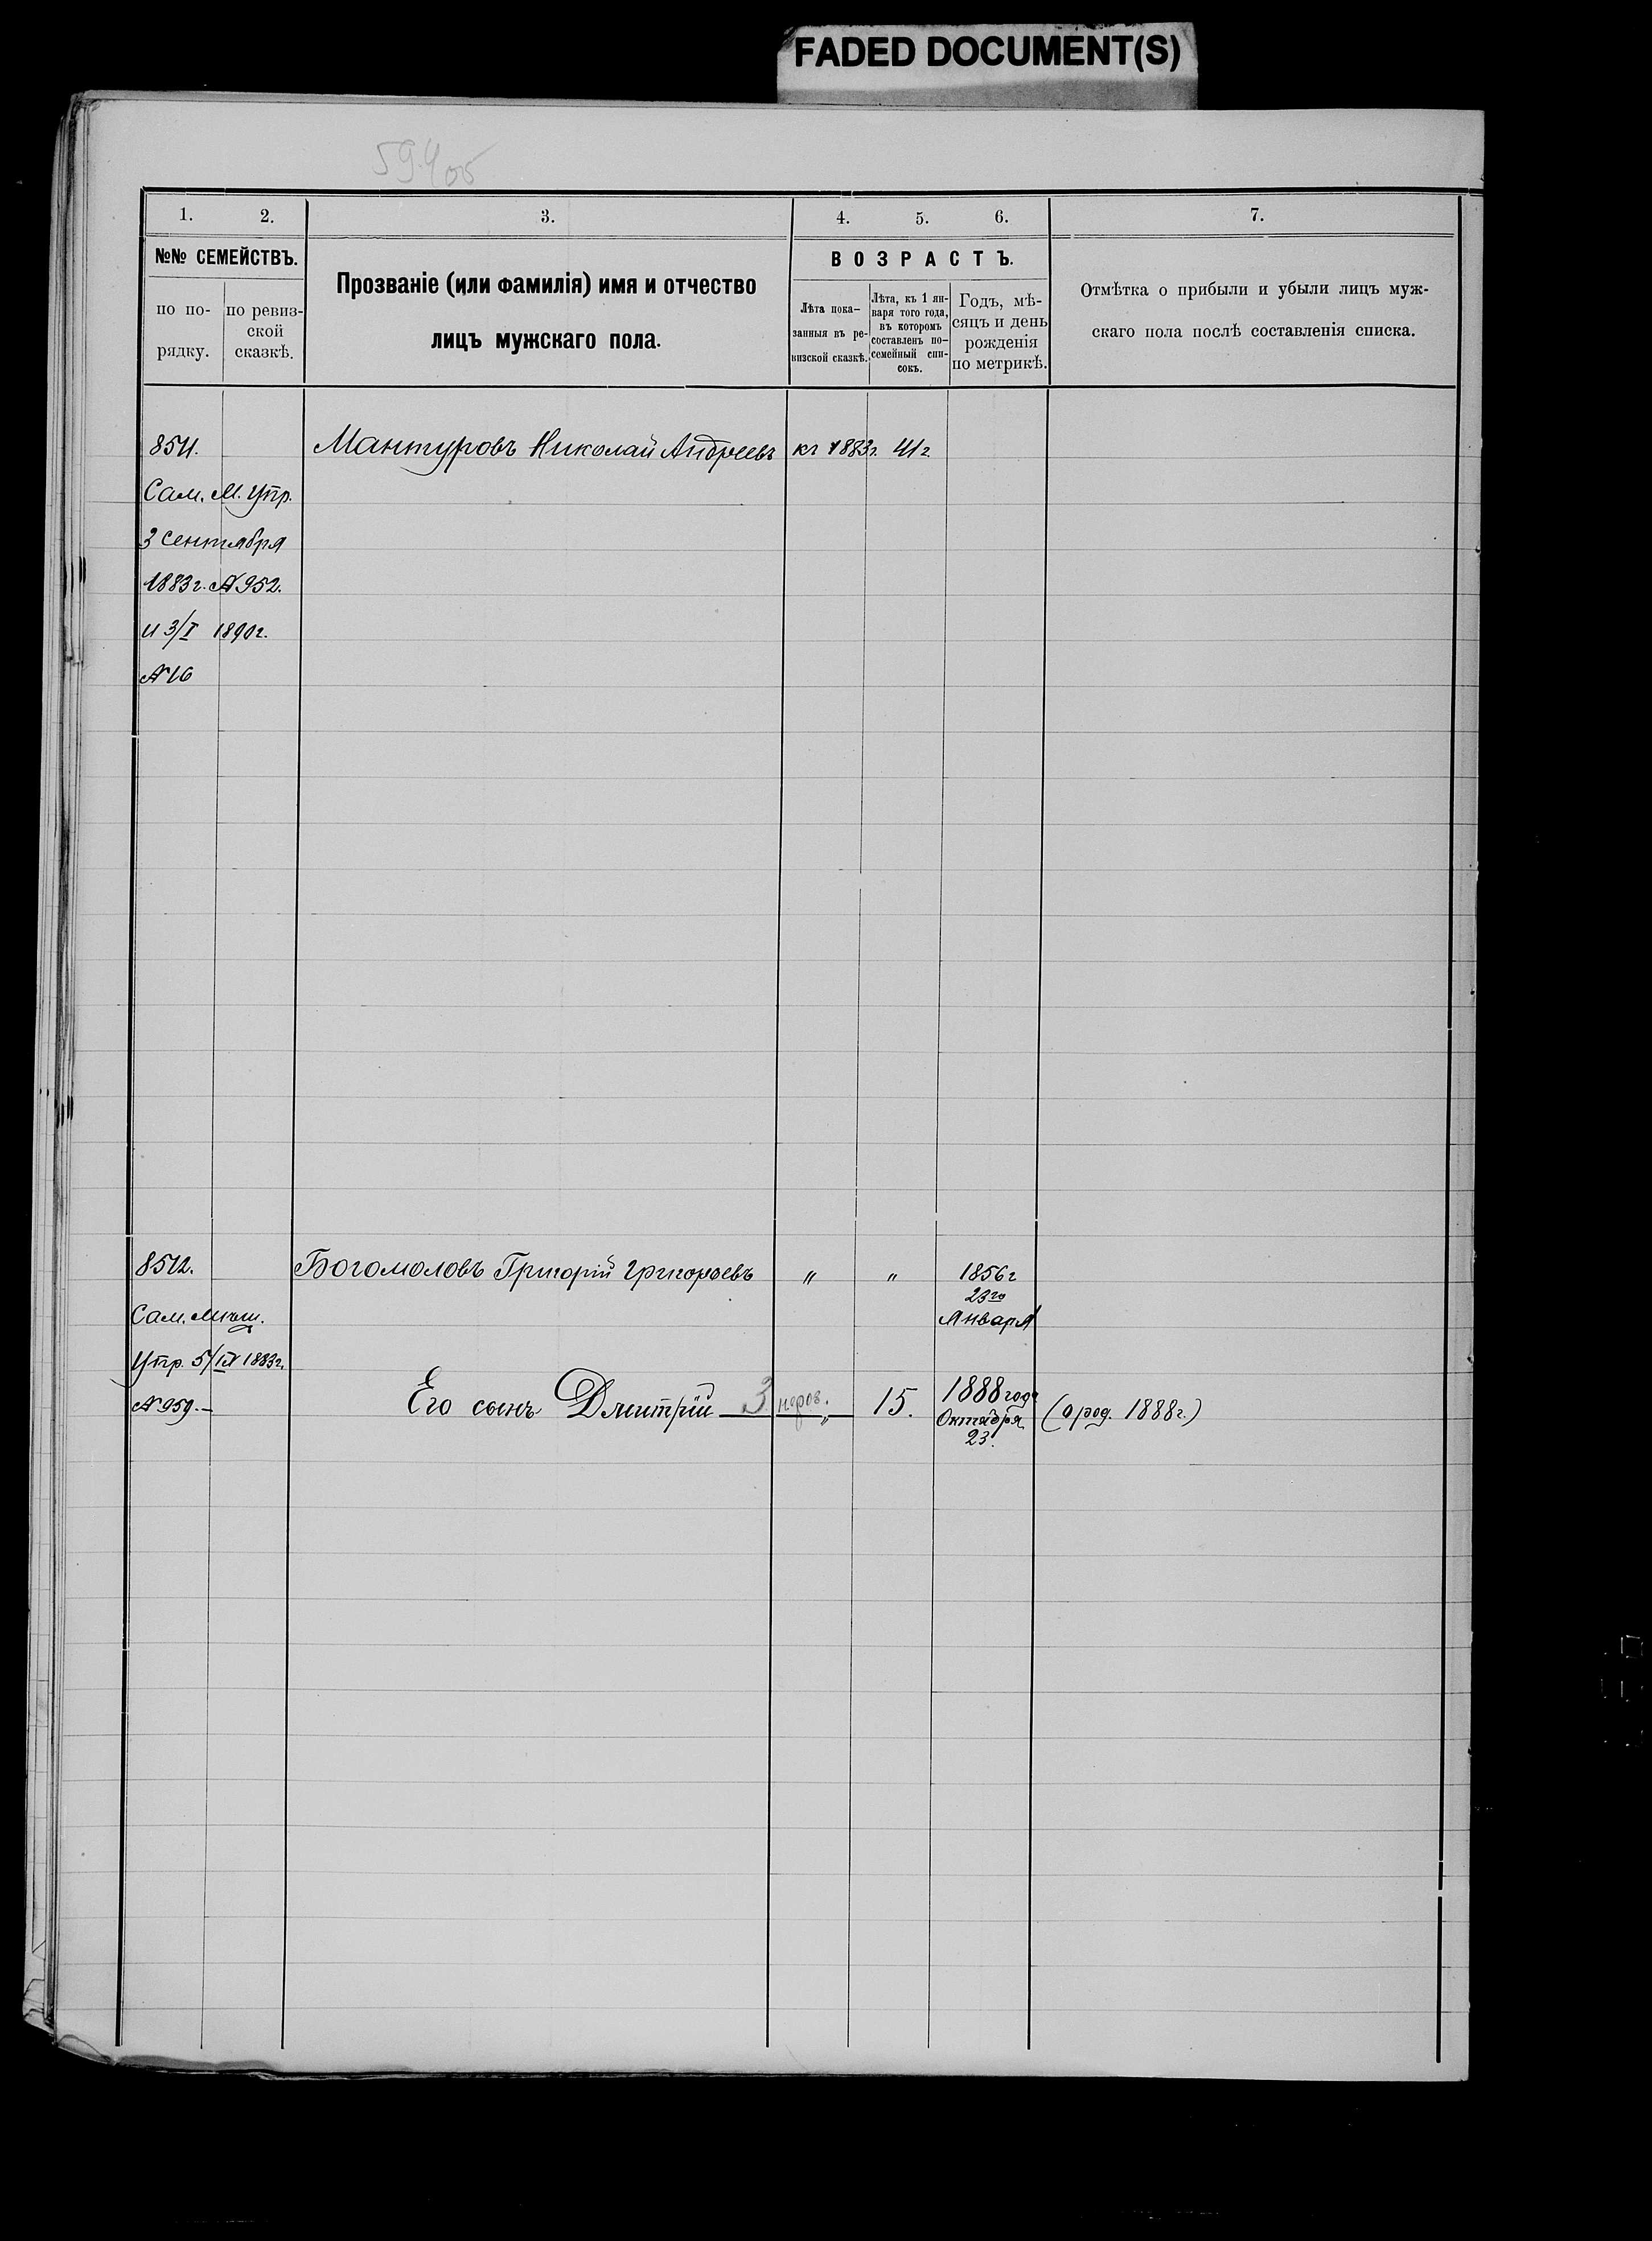 FADED DOCUMENT(S)
1. 2. 3. 4. 5. 6. 7.
№№ СЕМЕЙСТВЪ.
по порядку.
по ревизской сказкѣ.
Прозваніе (или фамилія) имя и отчество
лицъ мужскаго пола.
ВОЗРАСТЪ.
Лѣта пока-
занныя въ ре-
визской сказкѣ.
Лѣта, къ 1 ян-
варя того года,
въ которомъ
составленъ по-
семейный спи-
сокъ.
Годъ, мѣ-
сяцъ и день
рожденія
по метрикѣ.
Отмѣтка о прибыли и убыли лицъ муж-
скаго пола послѣ составленія списка.
8511. Мантуровъ Николай Андреевъ къ 1883г. 41г.
Сам. М. Упр.
3 Сентября
1883г. № 952.
и 3/I 1890г.
№ 16
8512. Богомоловъ Григорій Григорьевъ " " 1856г
23го
Января
Сам. Мѣщ.
Упр. 5/IX 1883г.
№ 959.—
Его сынъ Дмитрій 3 " 15. 1888 года
Октября
23.
(о род. 1888г.)